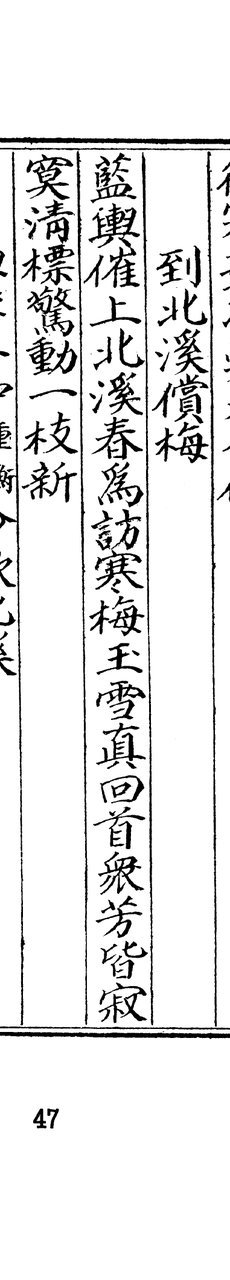 到北溪償梅
藍輿催上北溪春為訪寒梅玉雪真回首衆芳皆寂
寞清標驚動一枝新
47